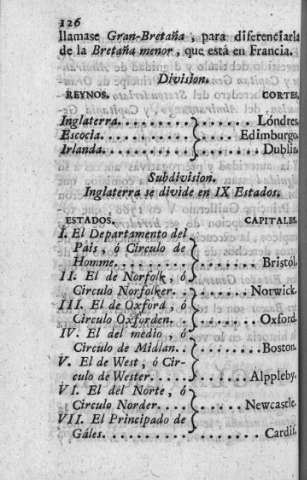 126
llamase Gran-Bretaña, para diferenciarla
de la Bretaña menor, que está en Francia.
Division.
REYNOS. CORTES.
Inglaterra........}...... Lóndres
Escocia...........}.... Edimburgo.
Irlanda...........}....... Dublin.
Subdivision.
Inglaterra se divide en IX Estados.
ESTADOS. CAPITALES
I. El Departamento del
País, ó Circulo de
Homme............}......... Bristól.
II. El de Norfolk, ó
Circulo Norfolker.}....... Norwick.
III. El de Oxford, ó
Circulo Oxforden.}........ Oxford.
IV. El del medio, ó
Circulo de Midlan..}........ Boston.
V. El de West, ó Cir-
culo de Wester.....}...... Alppleby.
VI. El del Norte, ó
Circulo Norder....}..... Newcastle.
VII. El Principado de
Gáles.............}......... Cardif.